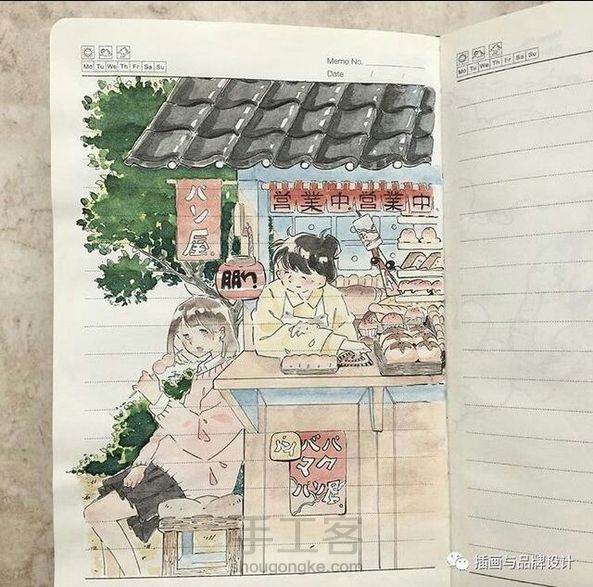 Memo No.
Mo Tu We Th Fr Sa Su
Date / /
Mo Tu We Th Fr Sa Su
パン屋
営業中営業中
手工客
shougongke.com
插画与品牌设计